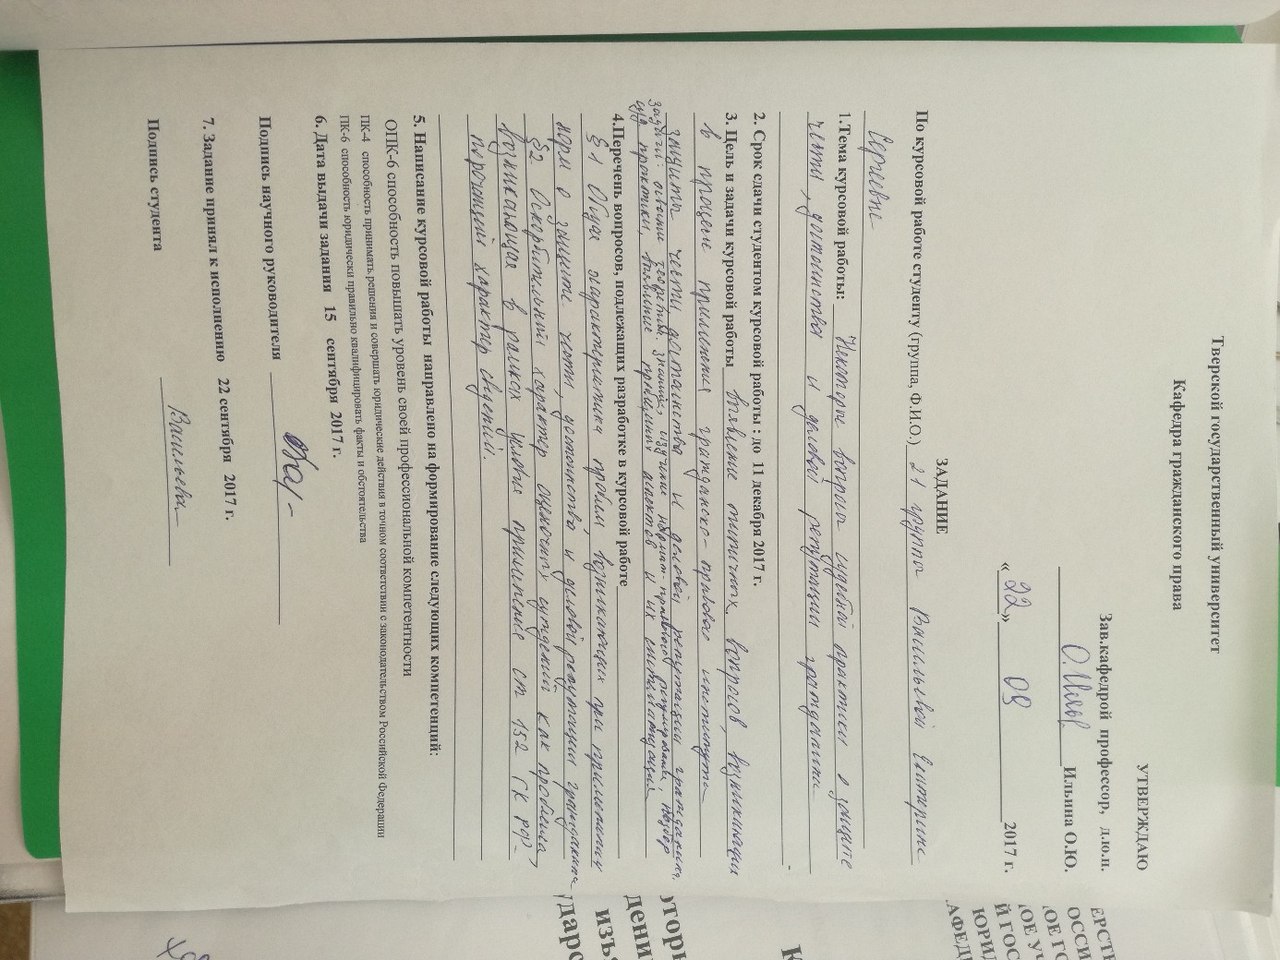 Тверской государственный университет
Кафедра гражданского права
УТВЕРЖДАЮ
Зав.кафедрой профессор, д.ю.н.
Ильина О.Ю.
«22» 09 2017 г.
ЗАДАНИЕ
По курсовой работе студенту (группа, Ф.И.О.) 21 группы Васильевой Екатерине
Сергеевне
1.Тема курсовой работы: Некоторые вопросы судебной практики о защите
чести, достоинства и деловой репутации гражданина
2. Срок сдачи студентом курсовой работы : до 11 декабря 2017 г.
3. Цель и задачи курсовой работы выявление типичных вопросов, возникающих
в процессе применения гражданско-правового института
защиты чести достоинства и деловой репутации гражданина.
задачи: знаний, изучение правового регулирования, подбор
практики, выявление проблемных аспектов и их
4.Перечень вопросов, подлежащих разработке в курсовой работе
§1 Общая характеристика проблем, возникающих при применении
норм о защите чести, достоинства и деловой репутации гражданина
§2 Оскорбительный характер оценочных суждений как проблема,
возникающая в рамках условия применения ст 152 ГК РФ-
порочащий характер сведений.
5. Написание курсовой работы направлено на формирование следующих компетенций:
ОПК-6 способность повышать уровень своей профессиональной компетентности
ПК-4 способность принимать решения и совершать юридические действия в точном соответствии с законодательством Российской Федерации
ПК-6 способность юридически правильно квалифицировать факты и обстоятельства
6. Дата выдачи задания 15 сентября 2017 г.
Подпись научного руководителя
7. Задание принял к исполнению 22 сентября 2017 г.
Подпись студента Васильева